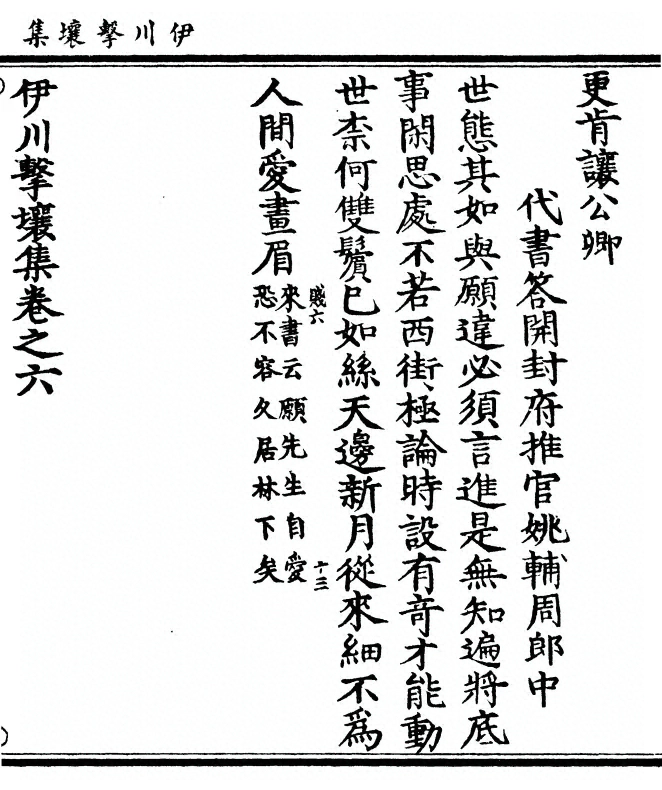 伊川擊壤集
更肯讓公卿
代書答開封府推官姚輔周郎中
世態其如與願違必須言進是無知遍將底
事閑思處不若西街極論時設有奇才能動
世柰何雙鬢已如絲天邊新月從來細不爲
人間愛畫眉
來書云願先生自愛
恐不容久居林下矣
賤六
十三
伊川擊壤集卷之六